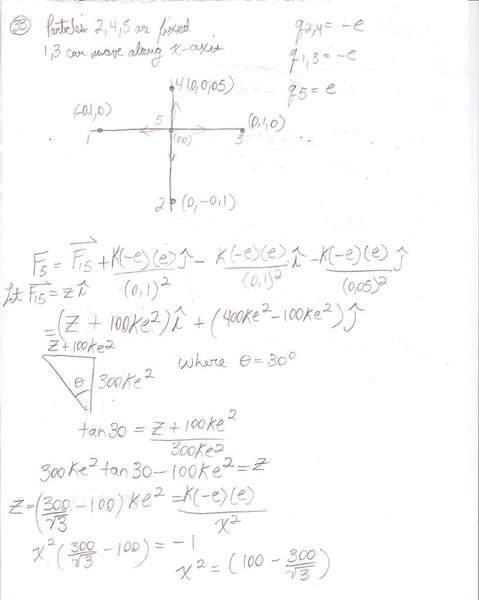 33 Particles 2,4,5 are fixed
1,3 can move along x-axis
q2,4 = -e
q1,3 = -e
q5 = e
4(0,0,05)
(-0,1,0)
5
(0,1,0)
1
(0,0)
3
2 (0,-0,1)
F5 = F15 + K(-e)(e) ĵ / (0,1)² - K(-e)(e) î / (0,1)² - K(-e)(e) ĵ / (0,05)²
Let F15 = z î
= (z + 100Ke²) î + (400Ke² - 100Ke²) ĵ
z + 100Ke²
θ 300Ke²
where θ = 30°
tan30 = z + 100Ke² / 300Ke²
300Ke² tan30 - 100Ke² = z
z = (300/√3 - 100) Ke² = K(-e)(e) / x²
x² (300/√3 - 100) = -1
x² = (100 - 300/√3)